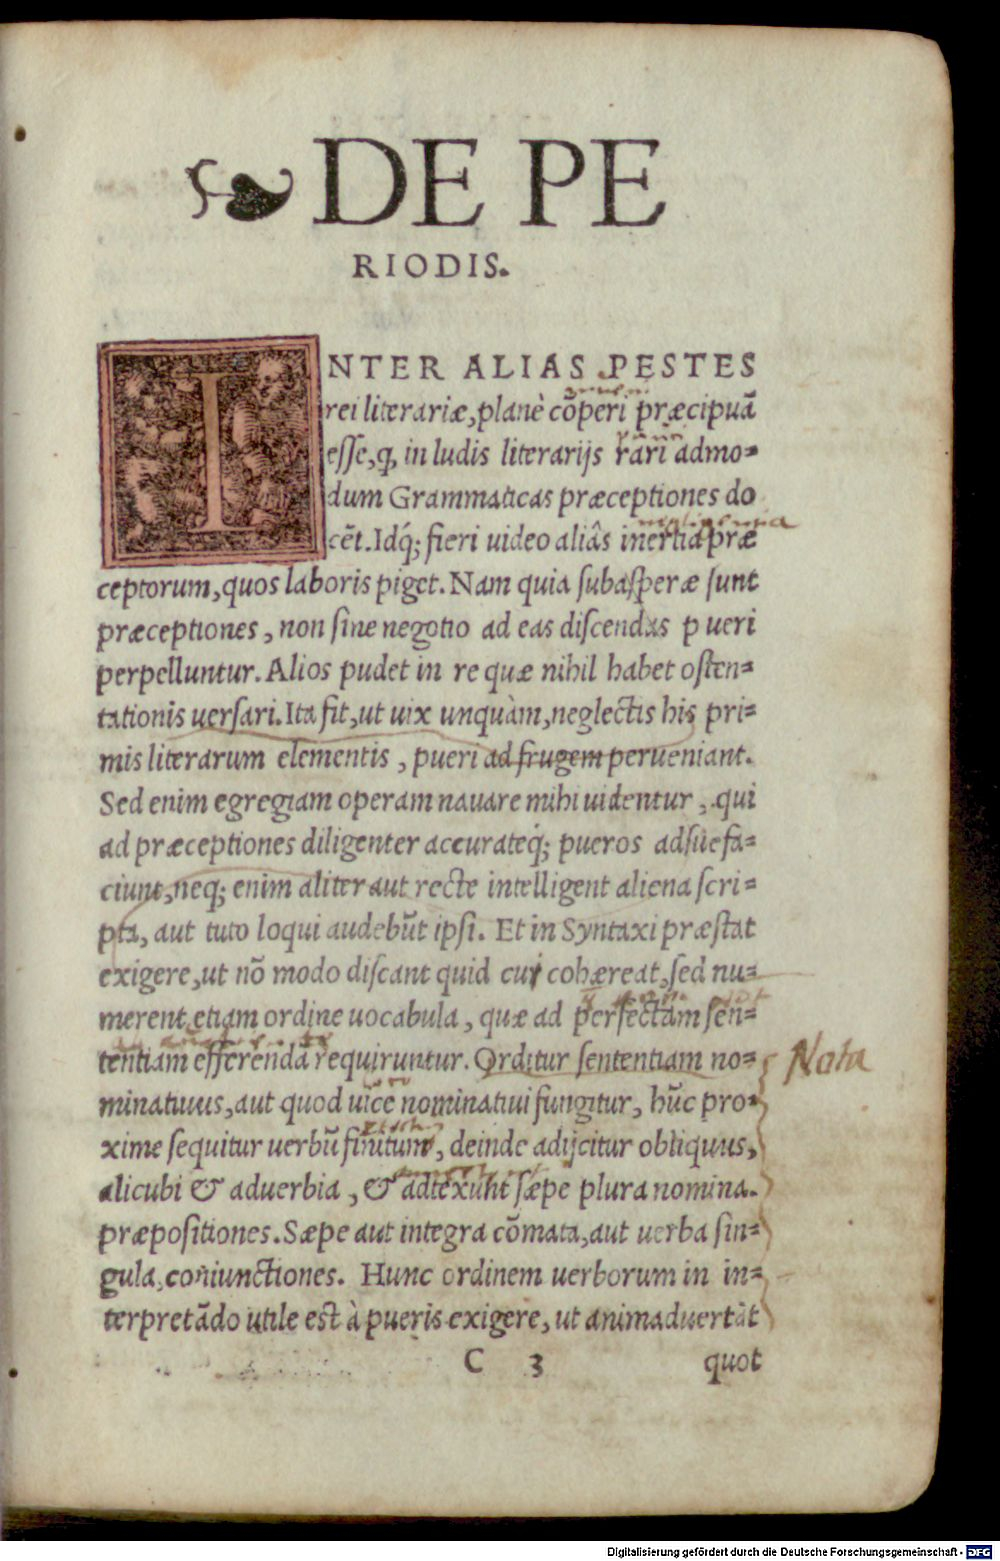 DE PE
RIODIS.
INTER ALIAS PESTES
rei literariæ, planè cõperi præcipuã
esse, ꝙ in ludis literarijs rari admo=
dum Grammaticas præceptiones do
negligentia
cẽt. Idq́; fieri uideo aliâs inertia præ
ceptorum, quos laboris piget. Nam quia subasperæ sunt
præceptiones, non sine negotio ad eas discendas pueri
perpelluntur. Alios pudet in re quæ nihil habet osten=
tationis uersari. Ita fit, ut uix unquàm, neglectis his pri=
mis literarum elementis, pueri ad frugem perueniant.
Sed enim egregiam operam nauare mihi uidentur, qui
ad præceptiones diligenter accurateq́; pueros adsuefa=
ciunt, neq; enim aliter aut recte intelligent aliena scri=
pta, aut tuto loqui audebũt ipsi. Et in Syntaxi præstat
exigere, ut nõ modo discant quid cui cohæreat, sed nu=
merent etiam ordine uocabula, quæ ad perfectam sen=
tentiam efferendã requiruntur. Orditur sententiam no=
Nota
minatiuus, aut quod uice nominatiui fungitur, hũc pro=
xime sequitur uerbũ finitum, deinde adijcitur obliquus,
alicubi & aduerbia, & adtexunt sæpe plura nomina.
præpositiones. Sæpe aut integra cõmata, aut uerba sin=
gula, coniunctiones. Hunc ordinem uerborum in in=
terpretãdo utile est à pueris exigere, ut animaduertãt
C 3 quot
Digitalisierung gefördert durch die Deutsche Forschungsgemeinschaft - DFG